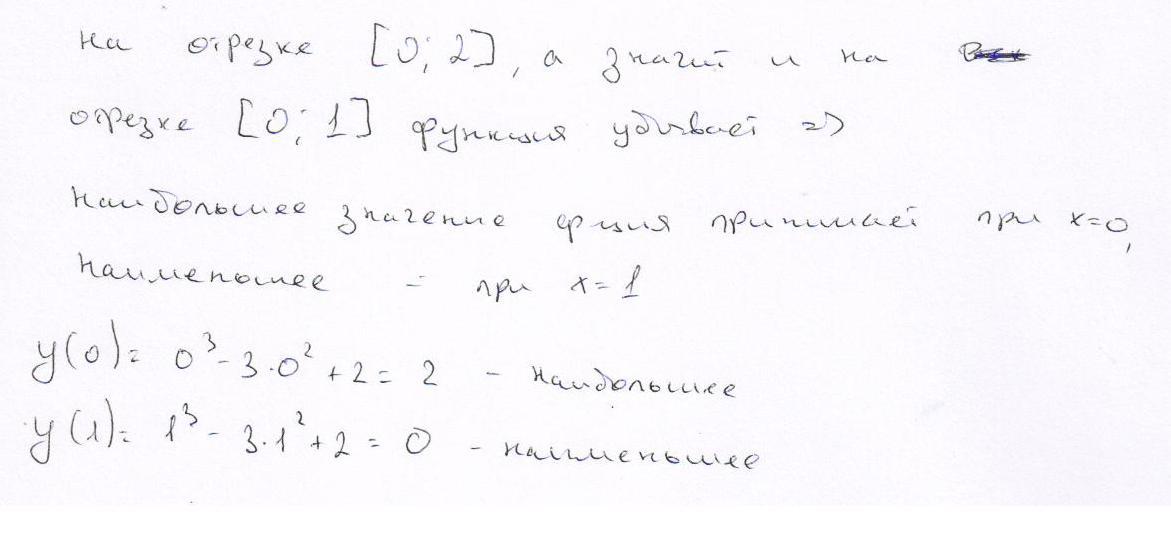 на отрезке [0; 2], а значит и на
отрезке [0; 1] функция убывает =>
наибольшее значение ф-ция принимает при x=0,
наименьшее - при x=1
y(0)= 0³-3·0²+2= 2 - наибольшее
y(1)= 1³-3·1²+2=0 - наименьшее